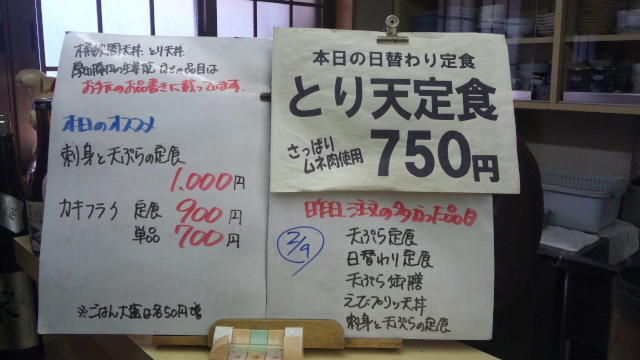 とり天丼
は
お手元のお品書きに載っています.
本日のオススメ
刺身と天ぷらの定食
1,000円
カキフライ 定食 900円
単品 700円
※ごはん大盛は各50円増
本日の日替わり定食
とり天定食
さっぱり
ムネ肉使用
750円
昨日、注文の多かった品目
2/9
天ぷら定食
日替わり定食
天ぷら御膳
えびプリッ天丼
刺身と天ぷらの定食